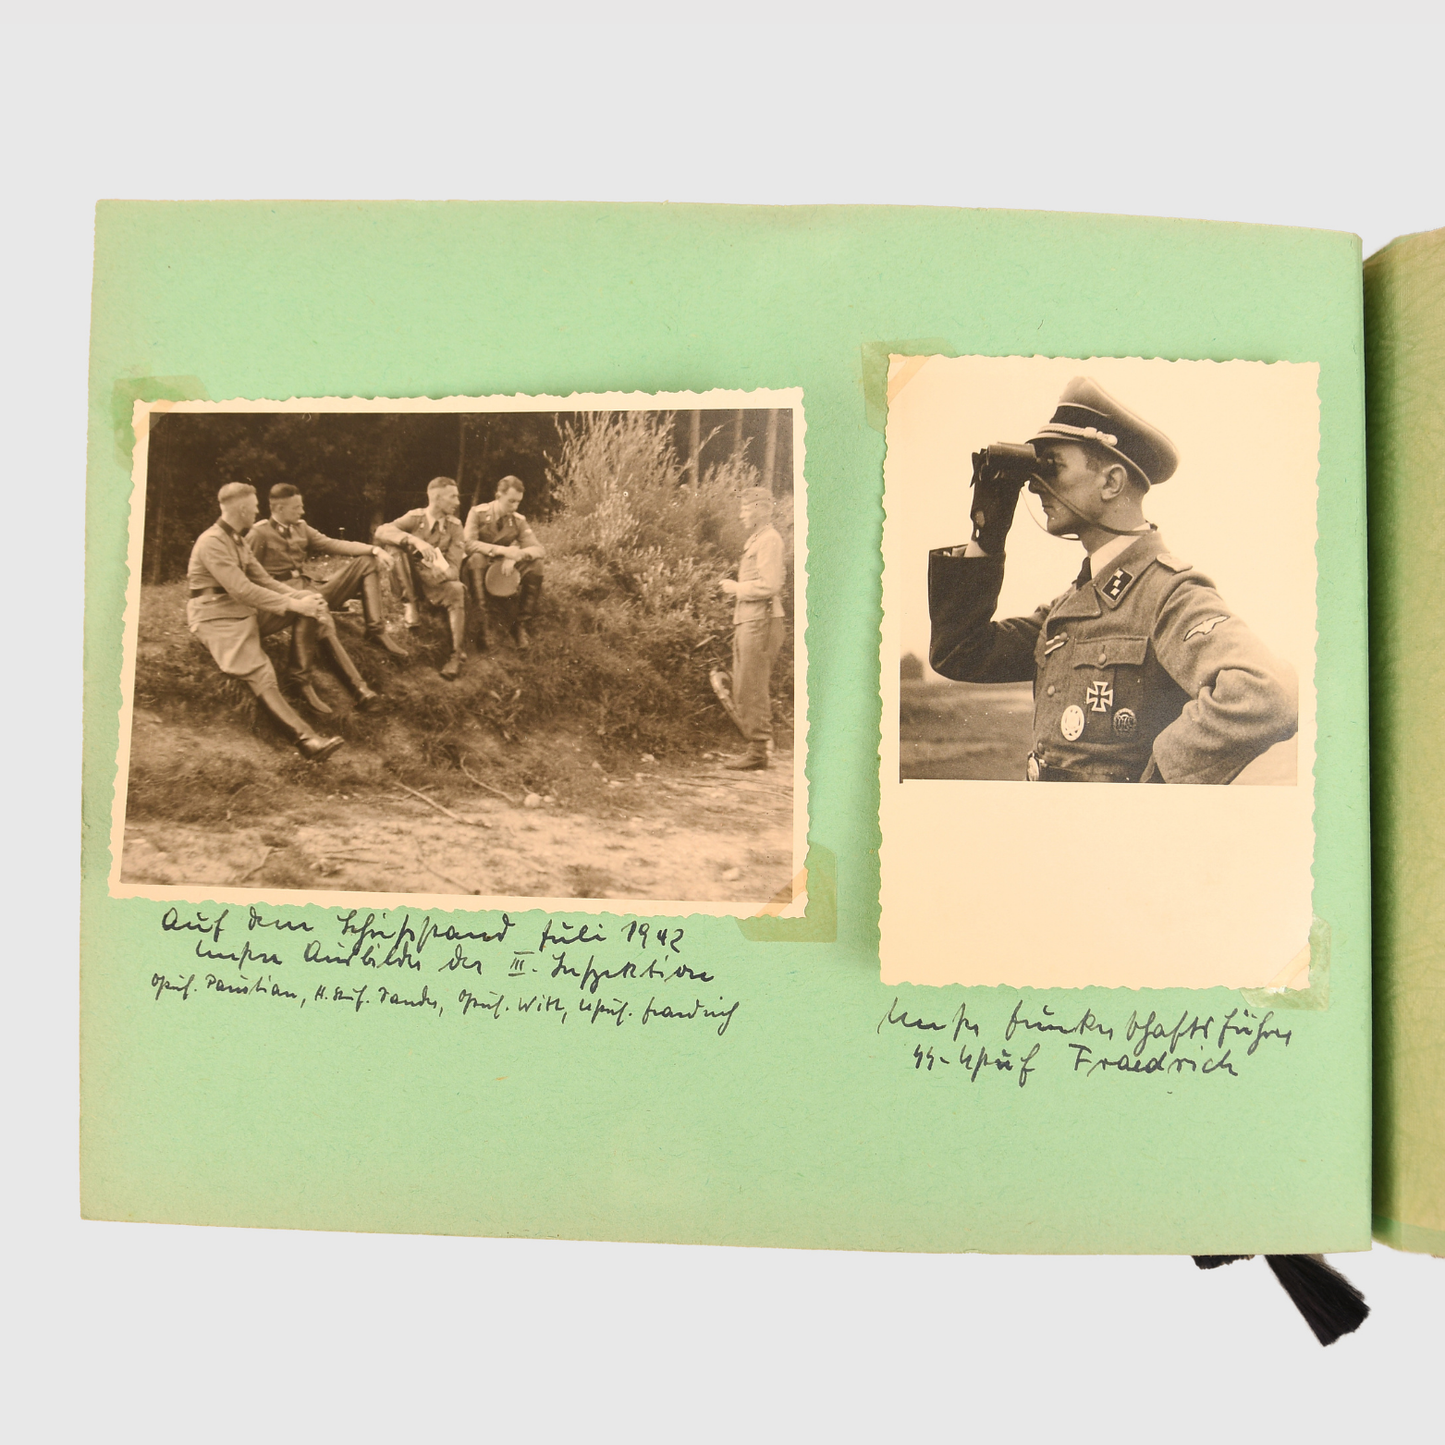 Auf dem Schießstand Juli 1942
unsere Ausbilder der III. Inspektion
Opuf. Paustian, H. Stuf. Opuf. Witt, Upuf. Fraedrich
Unser Junkerschaftsführer
SS-Upuf Fraedrich